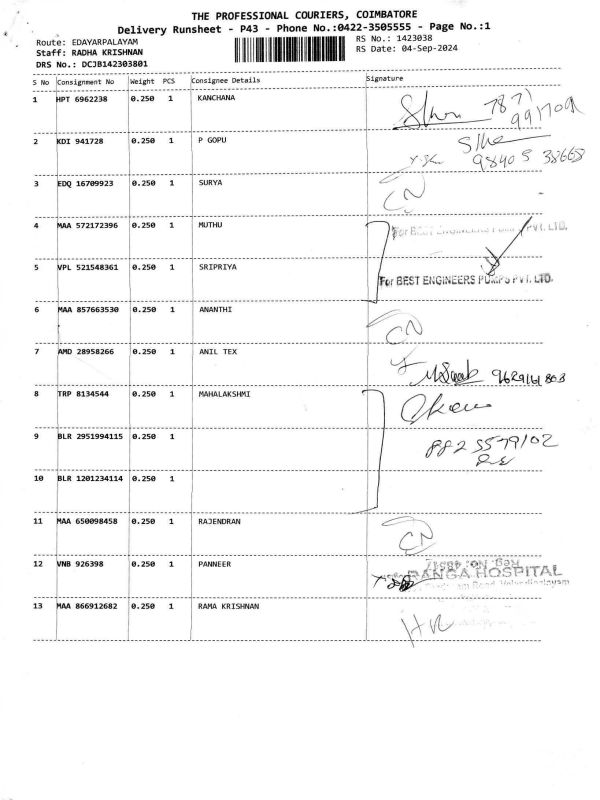 THE PROFESSIONAL COURIERS, COIMBATORE
Delivery Runsheet - P43 - Phone No.:0422-3505555 - Page No.:1
Route: EDAYARPALAYAM
RS No.: 1423038
Staff: RADHA KRISHNAN
RS Date: 04-Sep-2024
DRS No.: DCJB142303801
S No Consignment No Weight PCS Consignee Details Signature
1 HPT 6962238 0.250 1 KANCHANA
2 KDI 941728 0.250 1 P GOPU
98405 38668
3 EDQ 16709923 0.250 1 SURYA CN
4 MAA 572172396 0.250 1 MUTHU For BEST ENGINEERS PUMPS PVT. LTD.
5 VPL 521548361 0.250 1 SRIPRIYA For BEST ENGINEERS PUMPS PVT. LTD.
6 MAA 857663530 0.250 1 ANANTHI CN
7 AMD 28958266 0.250 1 ANIL TEX
8 TRP 8134544 0.250 1 MAHALAKSHMI
9 BLR 2951994115 0.250 1
10 BLR 1201234114 0.250 1
11 MAA 650098458 0.250 1 RAJENDRAN CN
12 VNB 926398 0.250 1 PANNEER RANGA HOSPITAL
13 MAA 866912682 0.250 1 RAMA KRISHNAN